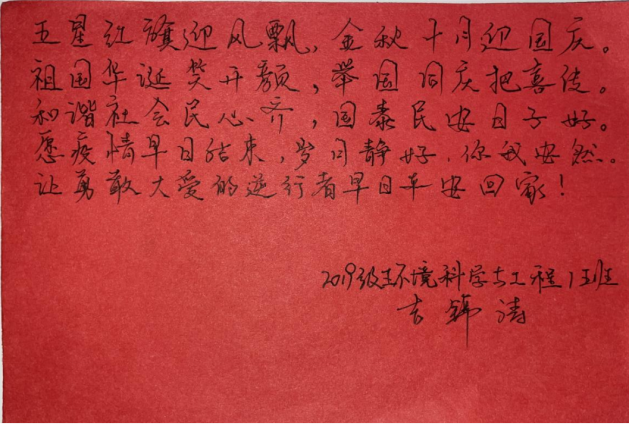 五星红旗迎风飘，金秋十月迎国庆。
祖国华诞笑开颜，举国同庆把喜传。
和谐社会民心齐，国泰民安日子好。
愿疫情早日结束，岁月静好，你我安然。
让勇敢大爱的逆行者早日平安回家！
2019级环境科学与工程1班
吉锦涛